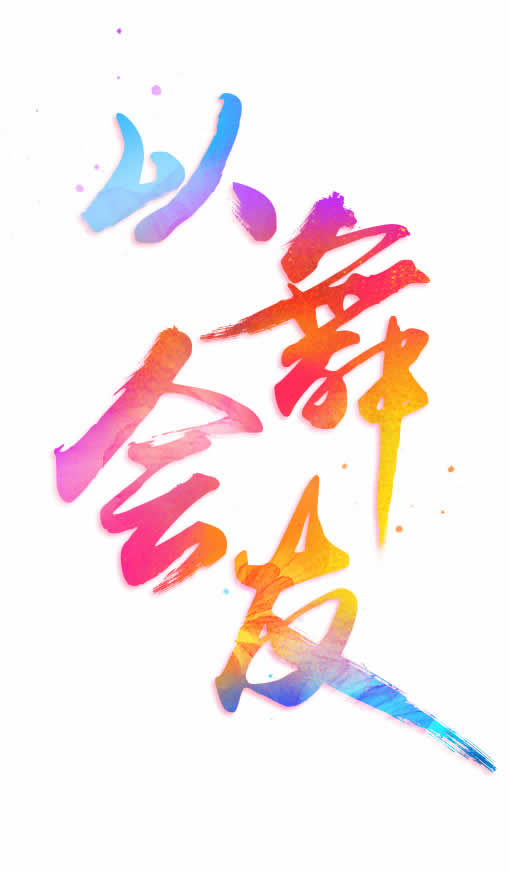 以舞会友